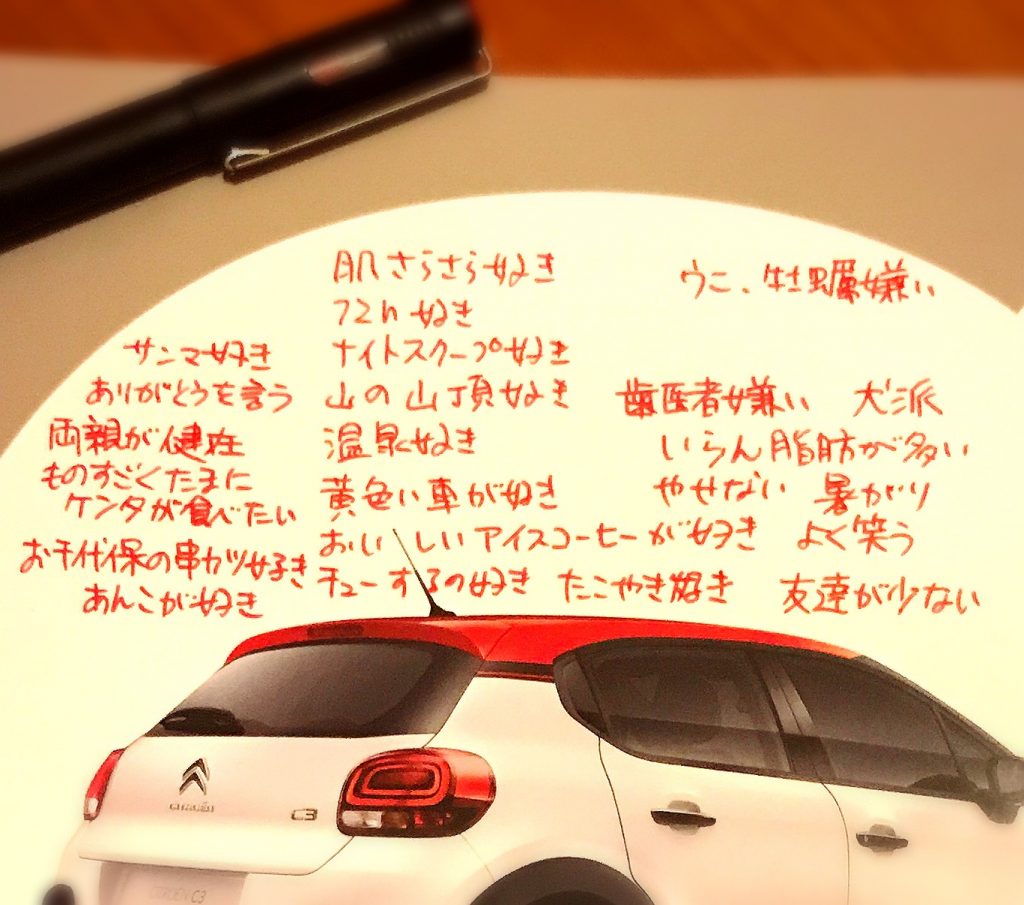 肌さらさら好き
72h好き
ナイトスクープ好き
山の山頂好き
温泉好き
黄色い車が好き
おいしいアイスコーヒーが好き
チューするの好き
たこやき好き
サンマ好き
ありがとうを言う
両親が健在
ものすごくたまに
ケンタが食べたい
お千代保の串カツ好き
あんこが好き
ウニ、牡蠣嫌い
歯医者嫌い
犬派
いらん脂肪が多い
やせない
暑がり
よく笑う
友達が少ない
CITROËN
C3
CITROËN C3